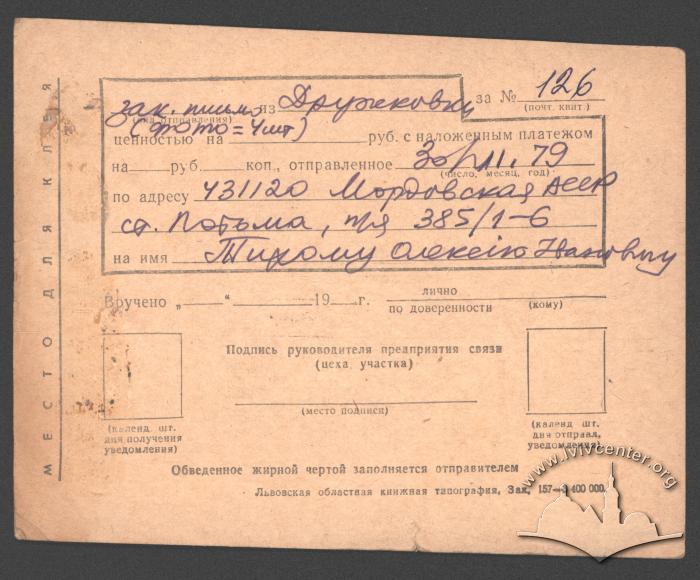 МЕСТО ДЛЯ КЛЕЯ
зак. письмо из Дружковки за № 126
(вид отправления) (почт. квит.)
(фото = 4 шт)
ценностью на руб. с наложенным платежом
на руб. коп., отправленное 30/11. 79
(число, месяц, год)
по адресу 431120 Мордовская АССР
ст. Потьма, п/я 385/1-6
на имя Тихому Олексію Івановичу
Вручено „ “ 19 г. лично
по доверенности (кому)
Подпись руководителя предприятия связи
(цеха, участка)
(место подписи)
(календ. шт.
дня получения
уведомления)
(календ. шт.
дня отправл.
уведомления)
Обведенное жирной чертой заполняется отправителем
Львовская областная книжная типография, Зак. 157— 400 000.
www.lvivcenter.org